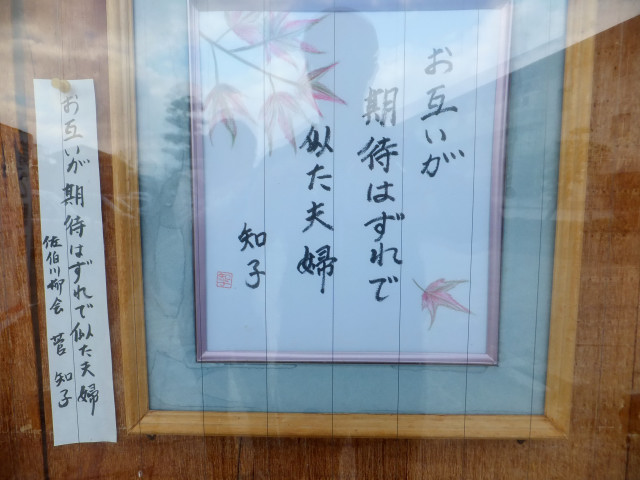 お互いが
期待はずれで
似た夫婦
知子
お互いが期待はずれで似た夫婦
佐伯川柳会 菅 知子